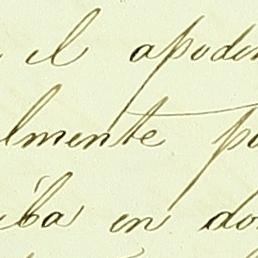 el apoder
lmente pa
iba en do